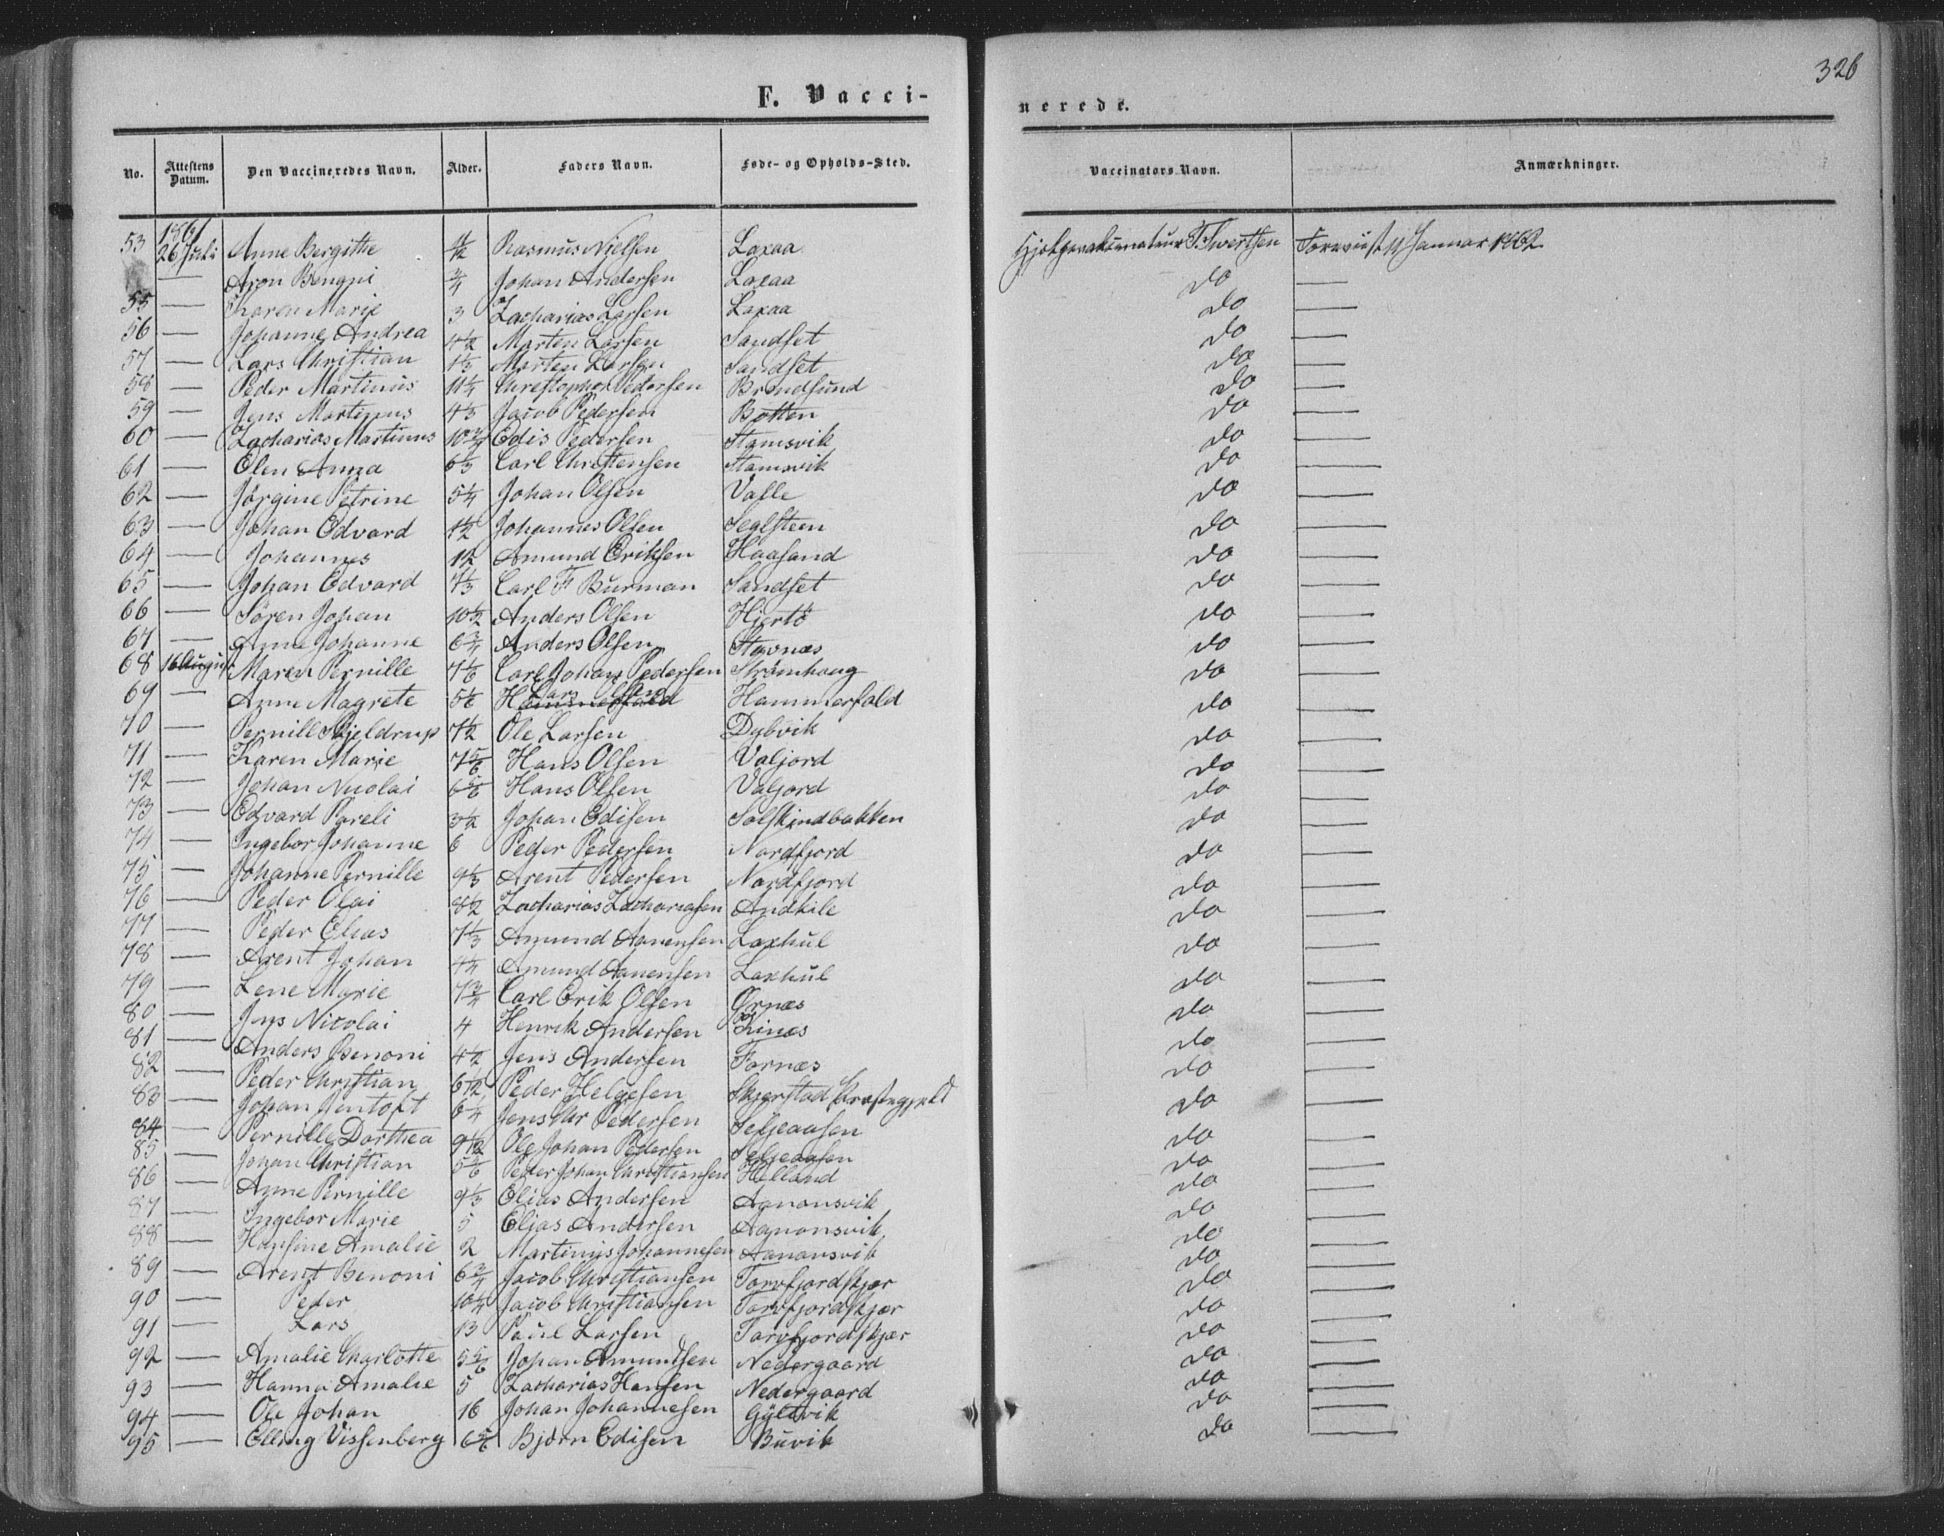 326
F. Vacci-
nerede.
No. Attestens Datum. Den Vaccineredes Navn. Alder. Faders Navn. Føde- og Opholds-Sted. Vaccinators Navn. Anmærkninger.
1861
53 26 Juli Anne Bergithe ½ Rasmus Nielsen Laxaa Januar 1862
— Aron Johan Andersen Laxaa do —
55 — Karen Marie 3 Zacharias Larsen Laxaa do —
56 — Johanne Andrea 4½ Morten Larsen Sandset do —
57 — Lars Christian 1⅓ Morten Larsen Sandset do —
58 — Peder Martinus 11¼ Christopher Pedersen Brændsund do —
59 — Jens Martinus 4⅓ Jacob Pedersen Botten do —
60 — Zacharias Martinus 10¾ Edis Pedersen Stamsvik do —
61 — Elen Anna 6⅓ Carl Christensen Stamsvik do —
62 — Jørgine Petrine 5¼ Johan Olsen Valle do —
63 — Johan Edvard 1½ Johannes Olsen Seglsteen do —
64 — Johannes 12 Amund Eriksen Haasand do —
65 — Johan Edvard 7⅓ Carl F Burman Sandset do —
66 — Søren Johan 10½ Anders Olsen Hjertö do —
67 — Anne Johanne 6¾ Anders Olsen Stavnæs do —
68 16 August Maren Pernille 7⅙ Carl Johan Pedersen Strømhaug do —
69 — Anne Magrete 5⅙ Lars Olsen Hammerfald do —
70 — Pernill Skjeldrup 7½ Ole Larsen Dybvik do —
71 — Karen Marie 7⅚ Hans Olsen Valjord do —
72 — Johan Nicolai 6⅚ Hans Olsen Valjord do —
73 — Edvard Pareli 3½ Johan Edisen Solskindbakken do —
74 — Ingebor Johanne 6 Peder Pedersen Nordfjord do —
75 — Johanne Pernille 9⅓ Arent Pedersen Nordfjord do —
76 — Peder Olai 8½ Zacharias Zachariasen Andkile do —
77 — Peder Elias 7⅓ Amund Aanensen Laxhul do —
78 — Arent Johan 4¼ Amund Aanensen Laxhul do —
79 — Lene Marie 7¾ Carl Erik Olsen Ørnæs do —
80 — Jens Nicolai 4 Henrik Andersen Finæs do —
81 — Anders Benoni 4½ Jens Andersen Fornæs do —
82 — Peder Christian Peder Helgesen Skjerstad Præstegjeld do —
83 — Johan Jentoft 6¼ Jens Chr Pedersen Seljeaasen do —
84 — Pernille Dorthea Ole Johan Pedersen Seljeaasen do —
85 — Johan Christian 5⅚ Peder Johan Christiansen Helland do —
86 — Anne Pernille 9⅓ Elias Andersen Aanonsvik do —
87 — Ingebor Marie 5 Elias Andersen Aanonsvik do —
88 — Hansine Amalie 2 Martinus Johannesen Aanonsvik do —
89 — Arent Benoni 6¾ Jacob Christiansen Torvfjordskjær do —
90 — Peder 10¼ Jacob Christiansen Torvfjordskjær do —
91 — Lars 13 Paul Larsen Torvfjordskjær do —
92 — Amalie Charlotte 5⅚ Johan Amundsen Nedergaard do —
93 — Hanna Amalie 5 Zacharias Hansen Nedergaard do —
94 — Ole Johan 16 Johan Johannesen Gyltvik do —
95 — Elling Vissenberg 6⅚ Bjørn Edisen Buvik do —